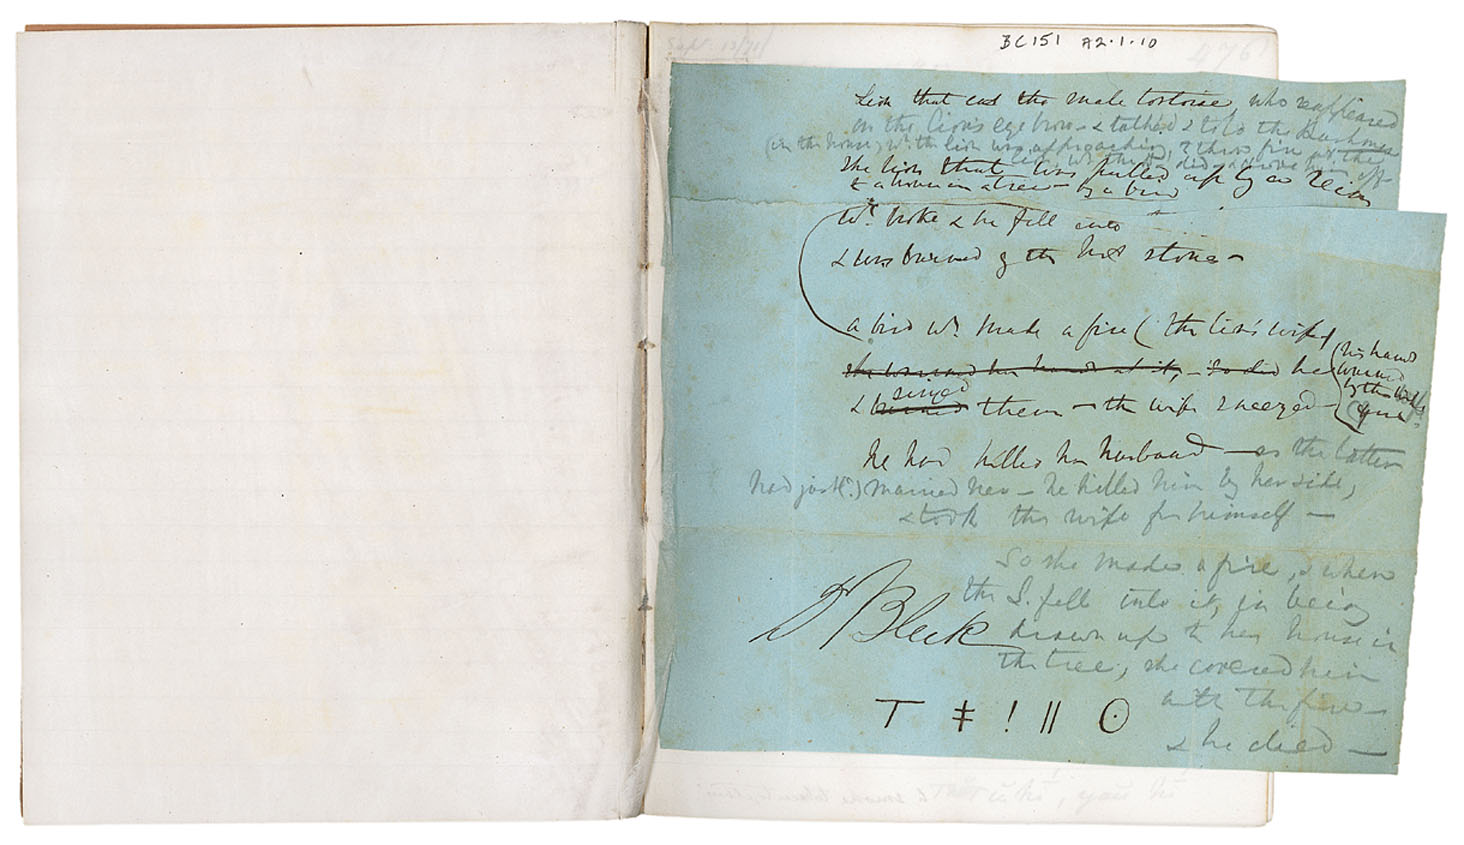 BC151 A2.1.10
Sept. 13/71
476
Lion that eat the male tortoise, who reappeared
on the lion's eye brow & talked & told the Bushmen
(in the house) wh. the lion was approaching, & throw fire at the
lion, wh. they did & drove him off
The lion that was pulled up by a reim
to a house in a tree — by a bird
wh. broke & he fell into
& was burned by the hot stones —
a bird wh. made a fire (the lion's wife
she warmed her hands at it, — so did he
his hands
warmed
by the wife's
fire
singed
& burned them — the wife sneezed —
he had killed her husband — as the latter
had just (?) married her — he killed him by her side,
& took the wife for himself —
So she made a fire, & when
the L. fell into it, in being
drawn up to her house in
the tree, she covered him
with the fire —
& he died —
Dr Bleek
T ǂ ! ǁ ʘ